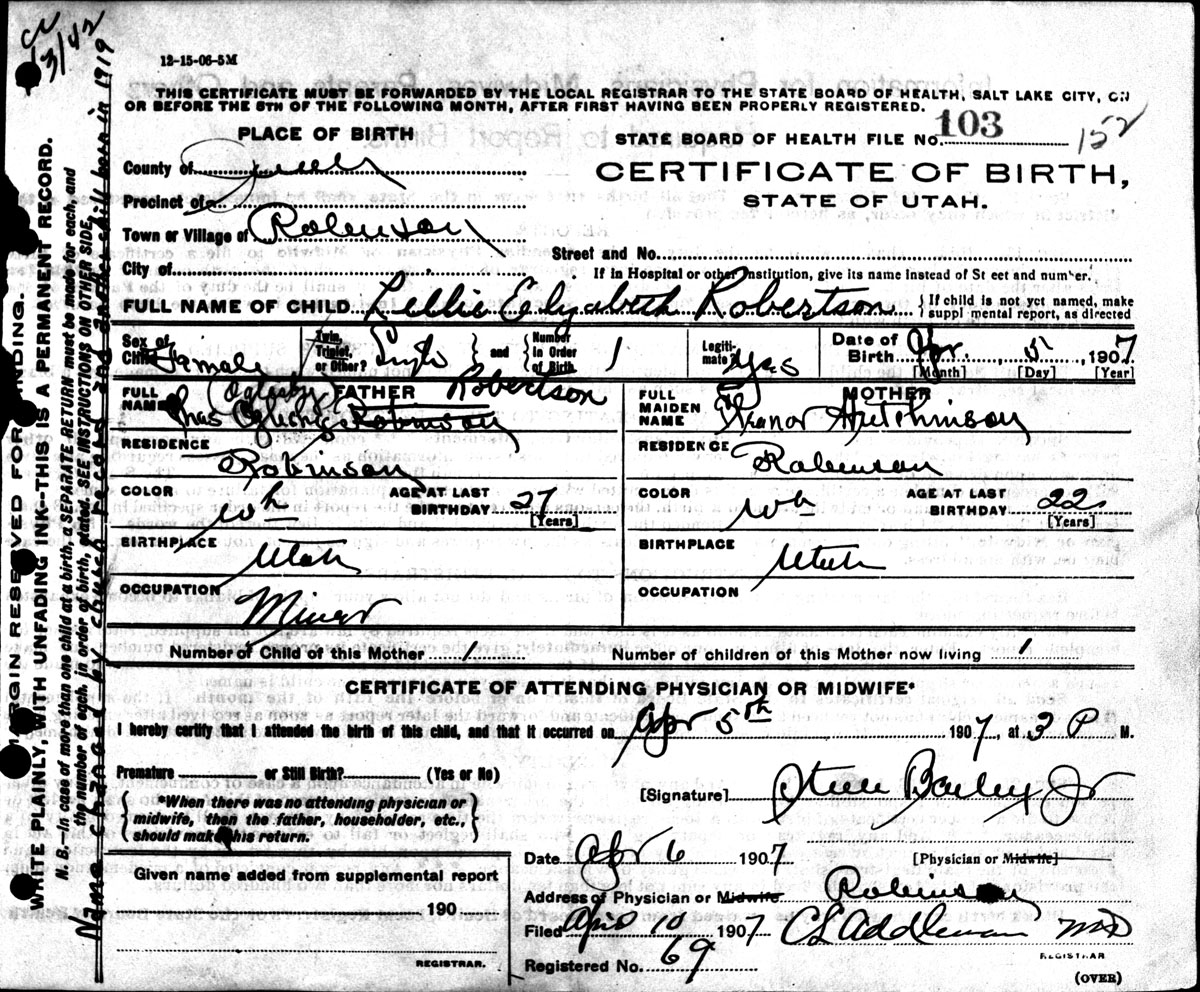 cc
3/42
12-15-06-5M
THIS CERTIFICATE MUST BE FORWARDED BY THE LOCAL REGISTRAR TO THE STATE BOARD OF HEALTH, SALT LAKE CITY, ON
OR BEFORE THE 5TH OF THE FOLLOWING MONTH, AFTER FIRST HAVING BEEN PROPERLY REGISTERED.
PLACE OF BIRTH
STATE BOARD OF HEALTH FILE No. 103 152
County of
CERTIFICATE OF BIRTH,
STATE OF UTAH.
Precinct of
Town or Village of Robinson
Street and No.
City of
If in Hospital or other Institution, give its name instead of St eet and number.
FULL NAME OF CHILD Lellie Elyabeth Robertson { If child is not yet named, make
suppl mental report, as directed
Sex of
Child Female
Twin,
Triplet,
or Other? Single } and { Number
in Order
of Birth 1
Legiti-
mate? Yes
Date of
Birth Apr. 5, 1907
[Month] [Day] [Year]
FATHER
FULL
NAME Chas Oglesby Robinson Robertson
MOTHER
FULL
MAIDEN
NAME Eleanor Hutchinson
RESIDENCE Robinson
RESIDENCE Robinson
COLOR Wh AGE AT LAST
BIRTHDAY 27
[Years]
COLOR Wh AGE AT LAST
BIRTHDAY 22
[Years]
BIRTHPLACE Utah
BIRTHPLACE Utah
OCCUPATION Miner
OCCUPATION
Number of Child of this Mother 1 Number of children of this Mother now living 1
CERTIFICATE OF ATTENDING PHYSICIAN OR MIDWIFE*
I hereby certify that I attended the birth of this child, and that it occurred on Apr 5th 1907, at 3 P M.
Premature or Still Birth? (Yes or No)
[Signature] Steele Bailey Jr
{ *When there was no attending physician or
midwife, then the father, householder, etc.,
should make this return. }
Date Apr 6 1907 [Physician or Midwife]
Given name added from supplemental report
190
REGISTRAR.
Address of Physician or Midwife Robinson
Filed Apr 10 1907 CL Addleman MD
REGISTRAR
Registered No. 69
(OVER)
MARGIN RESERVED FOR BINDING.
WRITE PLAINLY, WITH UNFADING INK—THIS IS A PERMANENT RECORD.
N. B.—In case of more than one child at a birth, a SEPARATE RETURN must be made for each and
the number of each, in order of birth, stated. SEE INSTRUCTIONS ON OTHER SIDE.
Name changed by church record and another child born in 1919